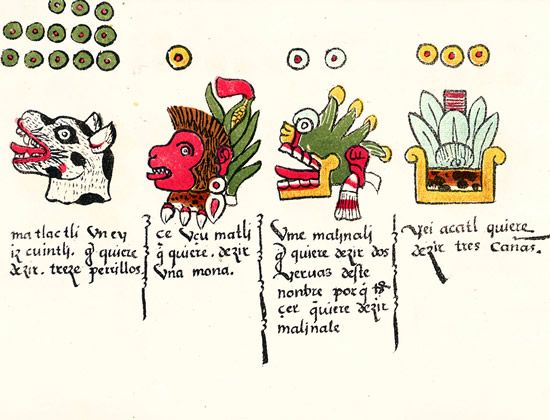 matlactli vn ey
iz cuintli. q̃ quiere
dezir. treze perillos
ce Vcu matli
q̃ quiere. dezir
Vna mona.
Vme malinali
q̃ quiere dezir dos
yeruas deste
nonbre porq̃
çer quiere dezir
malinale
Yei acatl quiere
dezir tres Canas.